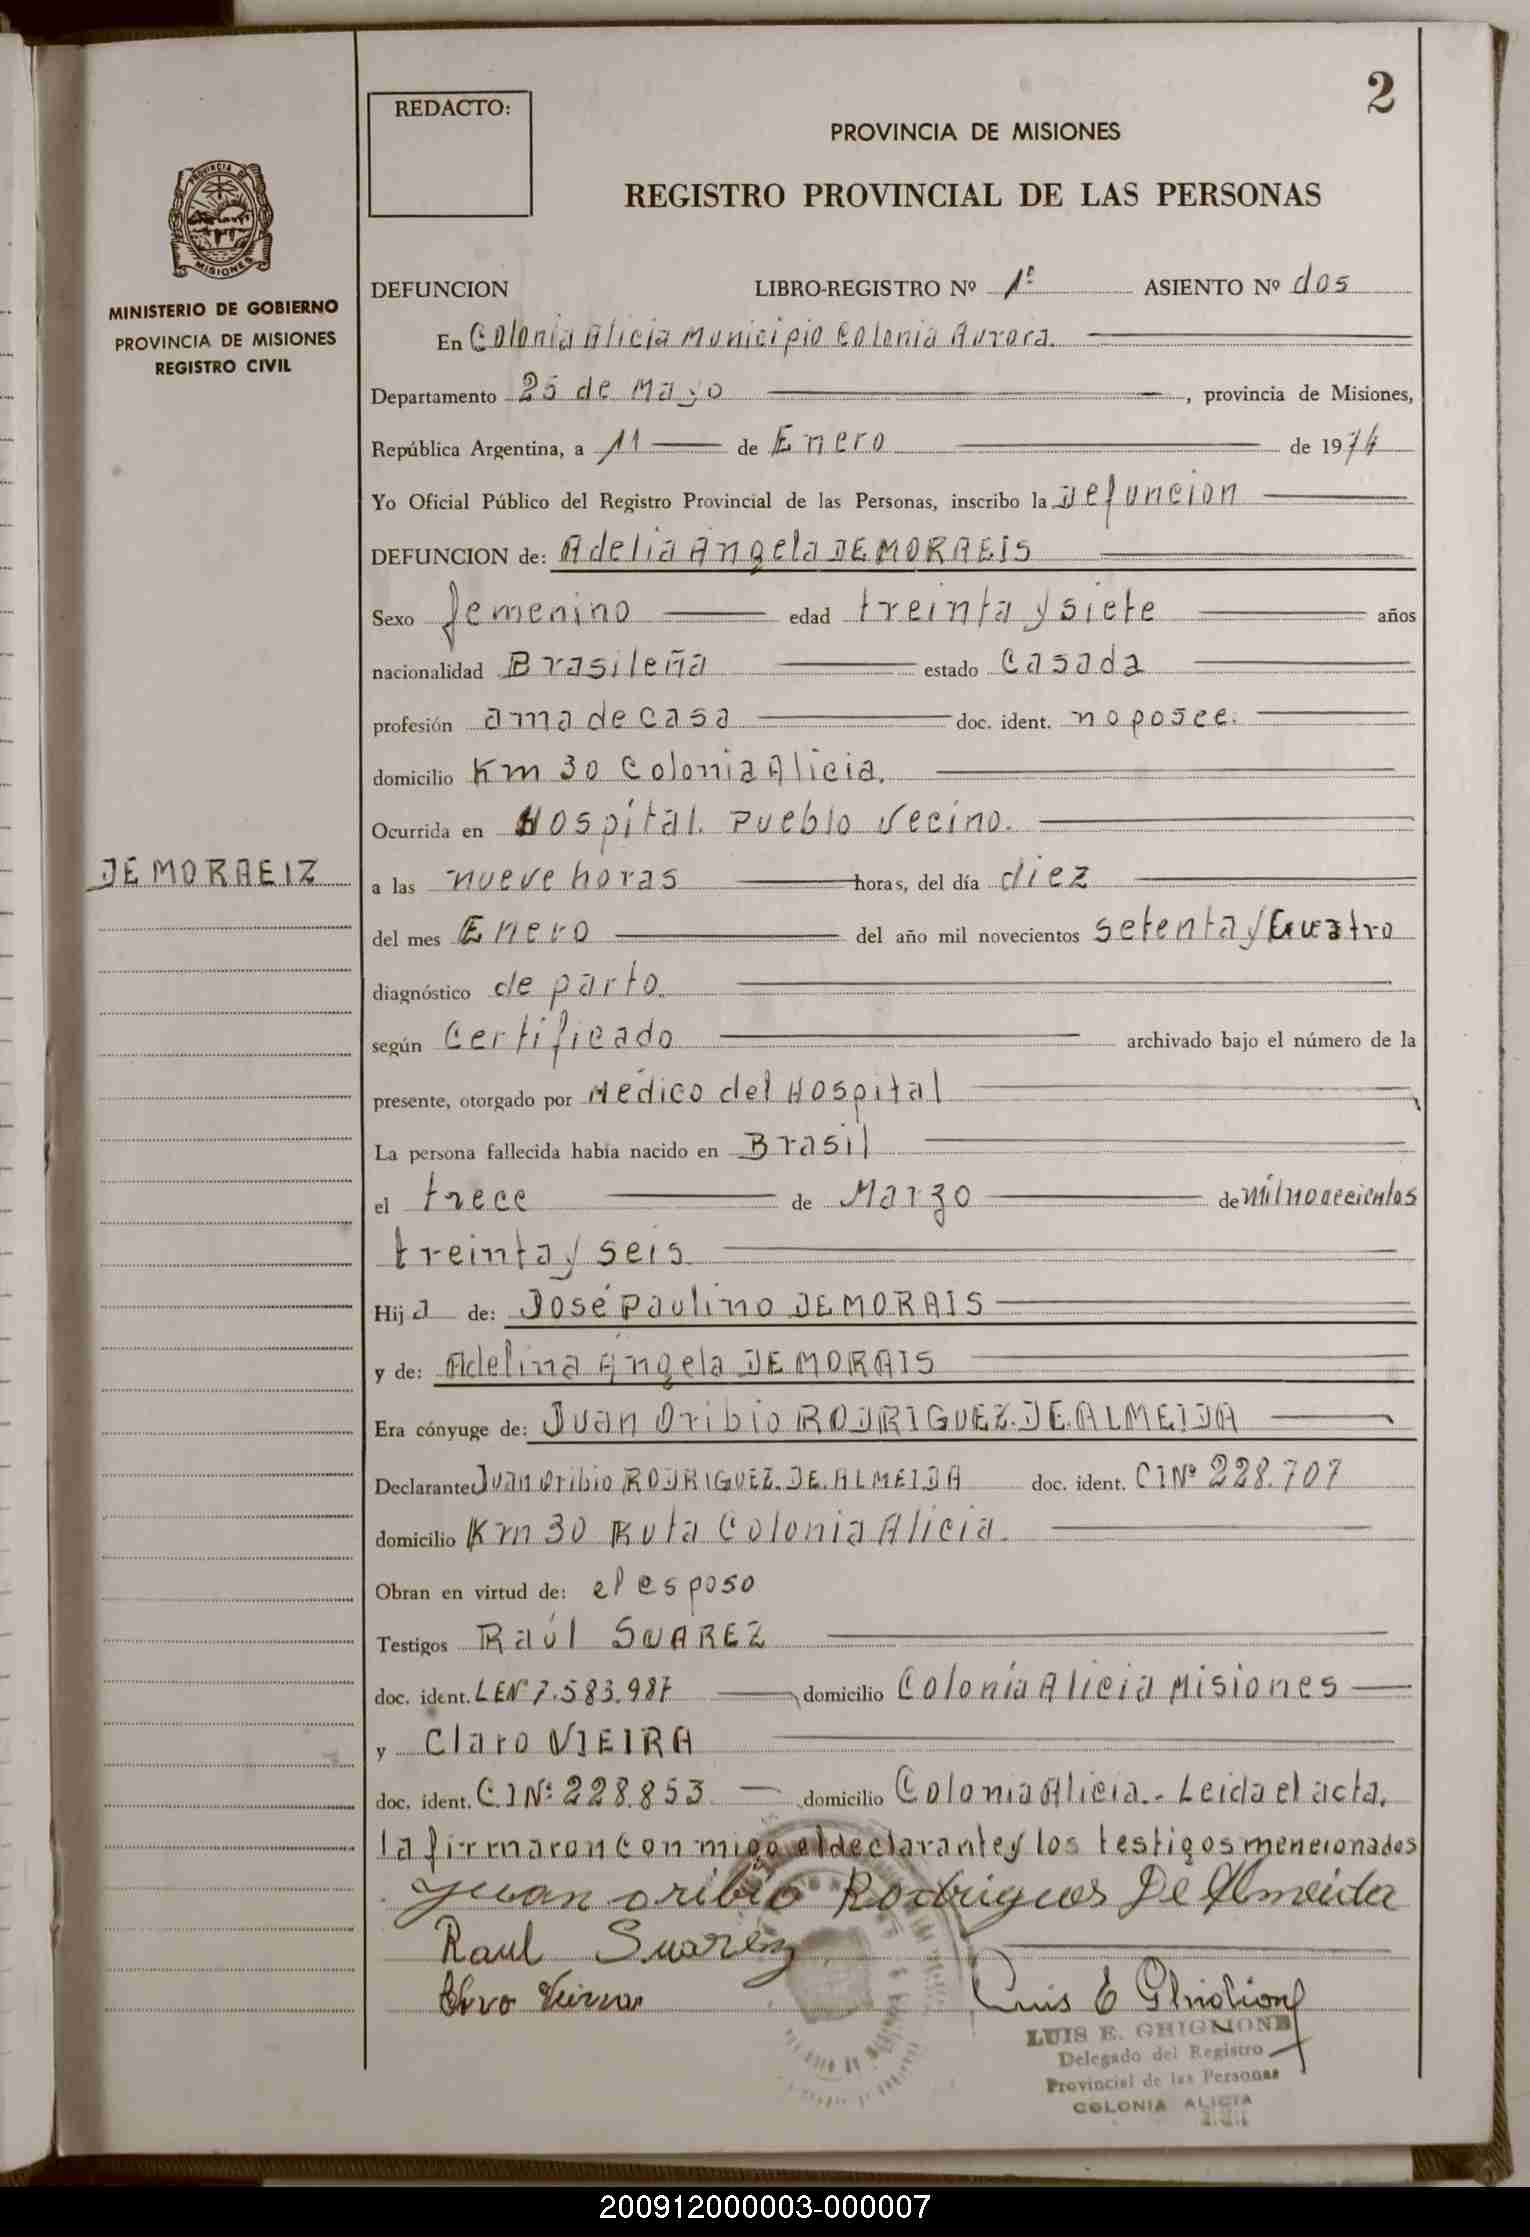 2
REDACTO:
PROVINCIA DE MISIONES
REGISTRO PROVINCIAL DE LAS PERSONAS
PROVINCIA DE
MISIONES
MINISTERIO DE GOBIERNO
PROVINCIA DE MISIONES
REGISTRO CIVIL
DEFUNCION LIBRO-REGISTRO Nº 1º ASIENTO Nº dos
En Colonia Alicia Municipio Colonia Aurora.
Departamento 25 de Mayo, provincia de Misiones,
República Argentina, a 11 de Enero de 1974
Yo Oficial Público del Registro Provincial de las Personas, inscribo la Defuncion
DEFUNCION de: Adelia Angela DEMORAEIS
Sexo femenino edad treinta y siete años
nacionalidad Brasileña estado Casada
profesión ama de casa doc. ident. no posee.
domicilio Km 30 Colonia Alicia.
Ocurrida en Hospital. Pueblo Vecino.
DE MORAEIZ
a las nueve horas horas, del día diez
del mes Enero del año mil novecientos setenta y Cuatro
diagnóstico de parto.
según Certificado archivado bajo el número de la
presente, otorgado por Médico del Hospital
La persona fallecida había nacido en Brasil
el trece de Marzo de milnovecientos
treinta y seis
Hija de: José Paulino DEMORAIS
y de: Adelina Angela DEMORAIS
Era cónyuge de: Juan Oribio RODRIGUEZ.DE.ALMEIDA
Declarante Juan Oribio RODRIGUEZ.DE.ALMEIDA doc. ident. CINº 228.707
domicilio Km 30 Ruta Colonia Alicia.
Obran en virtud de: el esposo
Testigos Raúl SUAREZ
doc. ident. LENº 7.583.987 domicilio Colonia Alicia Misiones
y Claro VIEIRA
doc. ident. C.I Nº: 228.853 domicilio Colonia Alicia.- Leida el acta.
la firmaron con migo el declarante y los testigos mencionados
Juan oribio Rodrigues De Almeida
Raul Suarez
Luis E Ghiglione
LUIS E. GHIGLIONE
Delegado del Registro
Provincial de las Personas
COLONIA ALICIA
200912000003-000007